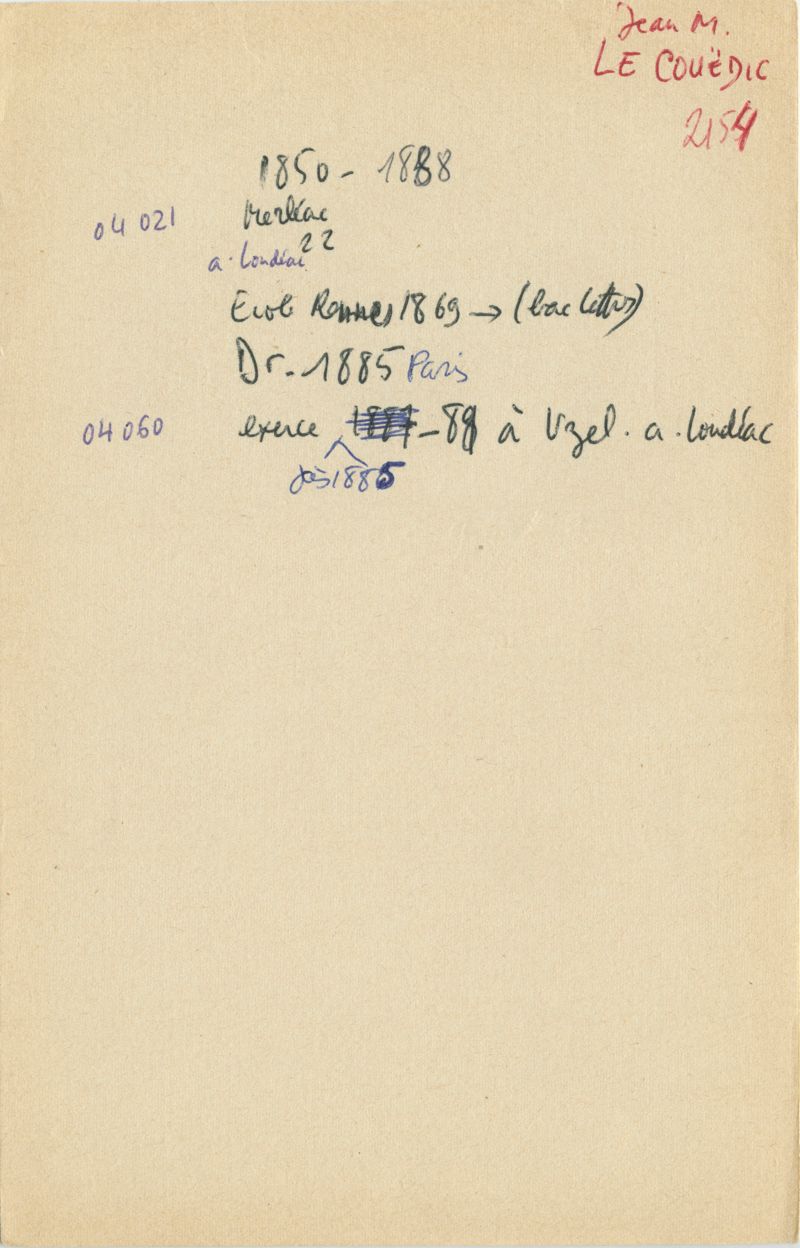 Jean M.
LE COUËDIC
2154
1850 - 1888
04 021 Merléac
a. Loudéac 22
Ecole Rennes 1869 → (bac lettres)
Dr. 1885 Paris
04 060 exerce - 89 à Uzel. a. Loudéac
dès 1885